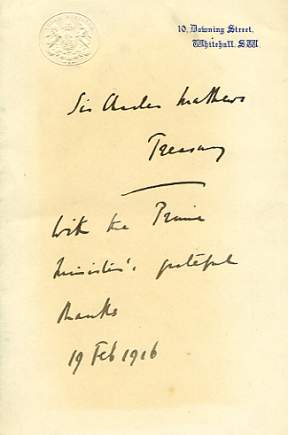 10, Downing Street,
Whitehall. S.W.
Sir Charles Mathews
Treasury
With the Prime
Minister's grateful
thanks
19 Feb 1916